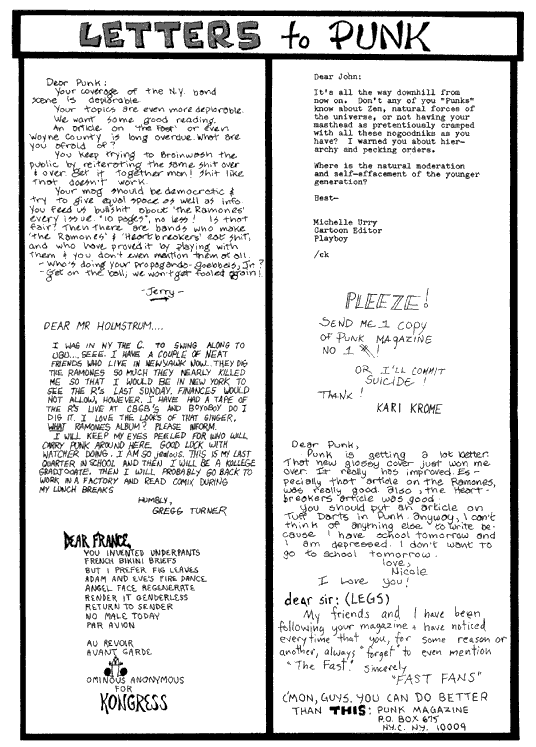 LETTERS to PUNK
Dear Punk:
Your coverage of the N.Y. band
scene is deplorable.
Your topics are even more deplorable.
We want some good reading.
An article on 'the Fast' or even
Wayne County is long overdue. What are
you afraid of?
You keep trying to Brainwash the
public by reiterating the same shit over
& over. Get it together man! Shit like
that doesn't work.
Your mag should be democratic &
try to give equal space as well as info
You feed us bullshit about 'the Ramones'
every issue. "10 pages", no less! Is that
fair? Then there are bands who make
'the Ramones' & 'Heartbreakers' eat shit,
and who have proved it by playing with
them & you don't even mention them at all.
- Who's doing your propaganda-Goebbels, Jr.?
- Get on the ball; we won't get fooled again!
-Jerry-
DEAR MR HOLMSTRUM....
I WAS IN NY THE C. TO SWING ALONG TO
UBO.... GEEE. I HAVE A COUPLE OF NEAT
FRIENDS WHO LIVE IN NEWYAWK NOW. THEY DIG
THE RAMONES SO MUCH THEY NEARLY KILLED
ME SO THAT I WOULD BE IN NEW YORK TO
SEE THE R's LAST SUNDAY. FINANCES WOULD
NOT ALLOW, HOWEVER. I HAVE HAD A TAPE OF
THE R'S LIVE AT CBGB'S AND BOYOBOY DO I
DIG IT. I LOVE THE LOOKS OF THAT GINGER.
WHAT RAMONES ALBUM? PLEASE INFORM.
I WILL KEEP MY EYES PEELED FOR WHO WILL
CARRY PUNK AROUND HERE. GOOD LUCK WITH
WATCHER DOING. I AM SO jealous. THIS IS MY LAST
QUARTER IN SCHOOL AND THEN I WILL BE A KOLLEGE
GRADJOOATE, THEN I WILL PROBABLY GO BACK TO
WORK IN A FACTORY AND READ COMIX DURING
MY LUNCH BREAKS
HUMBLY,
GREGG TURNER
DEAR FRANCE,
YOU INVENTED UNDERPANTS
FRENCH BIKINI BRIEFS
BUT I PREFER FIG LEAVES
ADAM AND EVE'S FIRE DANCE
ANGEL FACE REGENERATE
RENDER IT GENDERLESS
RETURN TO SENDER
NO MALE TODAY
PAR AVION
AU REVOIR
AVANT GARDE
OMINOUS ANONYMOUS
FOR
KONGRESS
Dear John:
It's all the way downhill from
now on. Don't any of you "Punks"
know about Zen, natural forces of
the universe, or not having your
masthead as pretentiously cramped
with all these nogoodniks as you
have? I warned you about hier-
archy and pecking orders.
Where is the natural moderation
and self-effacement of the younger
generation?
Beat—
Michelle Urry
Cartoon Editor
Playboy
/ck
PLEEZE!
SEND ME 1 COPY
OF PUNK MAGAZINE
NO 1
OR I'LL COMMIT
SUICIDE!
THANX!
KARI KROME
Dear Punk,
Punk is getting a lot better.
That new glossy cover just won me
over. It really has improved. Es-
pecially that article on the Ramones,
was really good. Also, the Heart-
breakers article was good.
You should put an article on
Tuff Darts in Punk. Anyway, I can't
think of anything else to write be-
cause I have school tomorrow and
I am depressed. I don't want to
go to school tomorrow.
love,
Nicole
I Love you!
dear sir: (LEGS)
My friends and I have been
following your magazine & have noticed
everytime that you, for some reason or
another, always "forget" to even mention
"The Fast." sincerely
"FAST FANS"
C'MON, GUYS. YOU CAN DO BETTER
THAN THIS: PUNK MAGAZINE
P.O. BOX 675
N.Y.C. N.Y. 10009